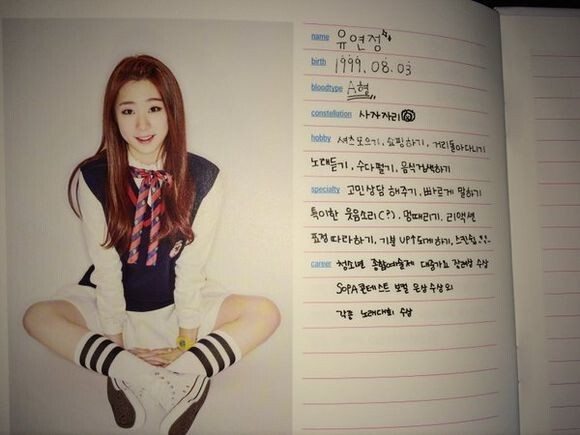 name 유연정
birth 1999. 08. 03
bloodtype A형
constellation 사자자리
hobby 셔츠모으기, 쇼핑하기, 거리돌아다니기
노래듣기, 수다떨기, 음식검색하기
specialty 고민상담 해주기, 빠르게 말하기
특이한 웃음소리(?), 멍때리기, 리액션
표정 따라하기, 기분 UP↑되게하기, 스킨쉽
career 청소년 종합예술제 대중가요 장려상 수상
SOPA콘테스트 보컬 은상 수상 외
각종 노래대회 수상